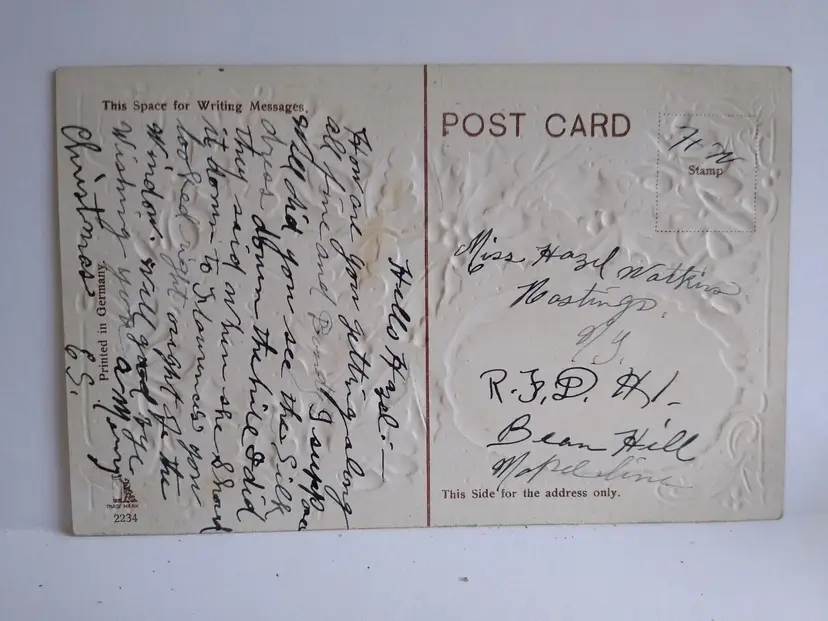 This Space for Writing Messages.
Hello Hazel:—
How are you getting along
all fine and I suppose
well did you see the Silk
dress down the hill I did
they said when she
it down to you
looked right out of the
window. well good bye
Wishing you a Merry
Christmas
Printed in Germany.
TRADE MARK
2234
POST CARD
H W
Stamp
Miss Hazel Watkins
Hastings.
N.Y.
R.F.D. #1-
Bean Hill
This Side for the address only.